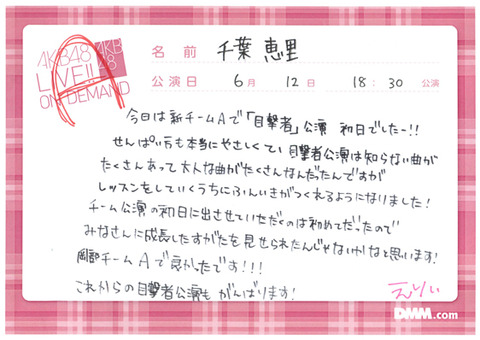 AKB48 LIVE!! ON DEMAND
AKB48
A
名前 千葉 恵里
公演日 6月 12日 18:30 公演
今日は新チームAで「目撃者」公演 初日でしたー!!
せんぱい方も本当にやさしくてい 目撃者公演は知らない曲が
たくさんあって大人な曲がたくさんなんだったんですが
レッスンをしていくうちにふんいきがつくれるようになりました!
チーム公演の初日に出させていただくのは初めてだったので
みなさんに成長したすがたを見せられたんじゃないかなと思います!
岡部チームAで良かったです!!!
これからの目撃者公演も がんばります!
えりい
DMM.com